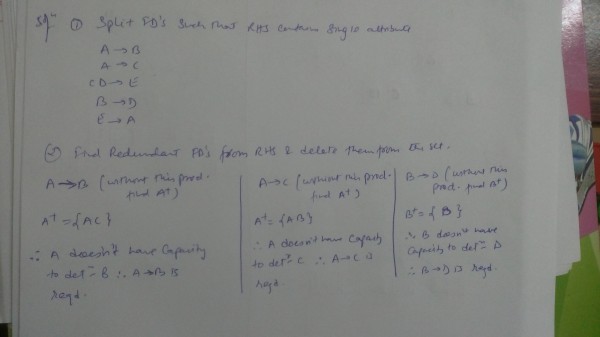 Solⁿ ① Split FD's such that RHS contains single attribute
A → B
A → C
CD → E
B → D
E → A
② Find Redundant FD's from RHS & delete them from the set.
A → B (without this prod. find A⁺)
A⁺ = {AC}
∴ A doesn't have Capacity
to detⁿ B ∴ A → B is
reqd.
A → C (without this prod. find A⁺)
A⁺ = {AB}
∴ A doesn't have Capacity
to detⁿ C ∴ A → C is
reqd.
B → D (without this prod. find B⁺)
B⁺ = {B}
∴ B doesn't have
Capacity to detⁿ D
∴ B → D is reqd.